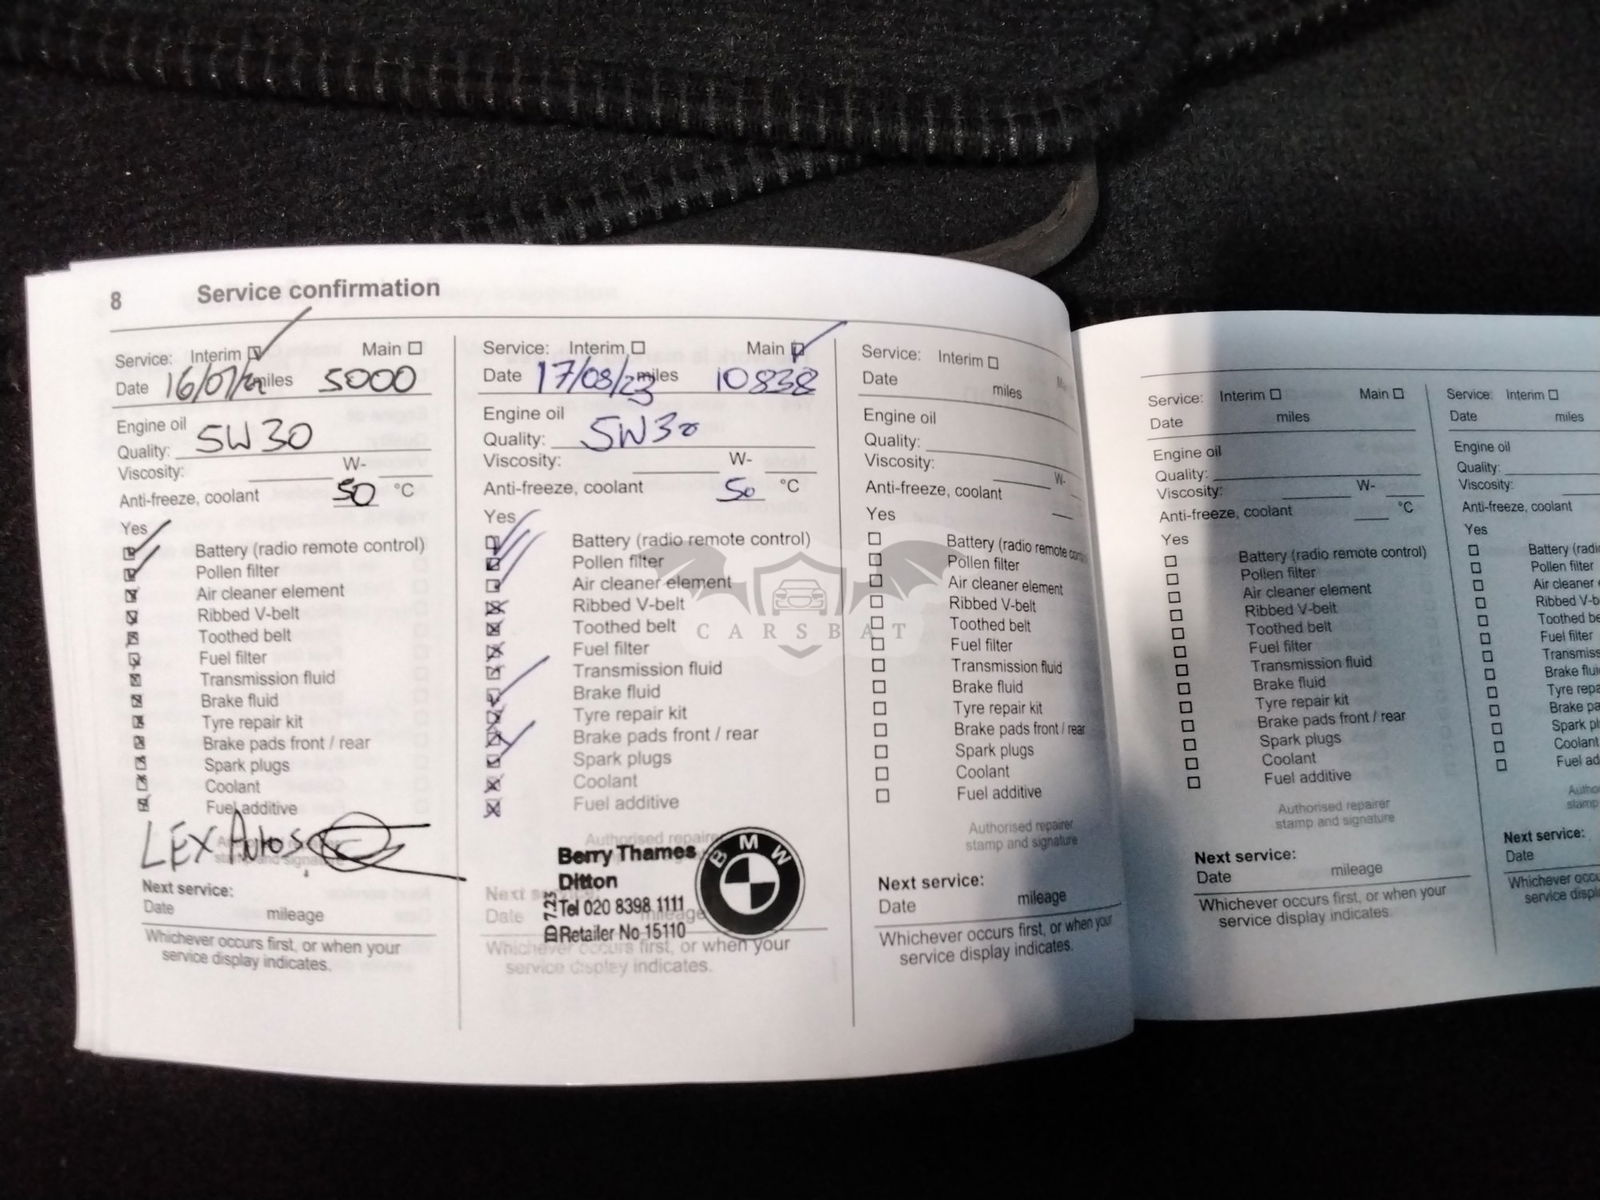 8 Service confirmation
Service: Interim Main
Date 16/07/22 miles 5000
Engine oil
Quality: 5W30
Viscosity: W-
Anti-freeze, coolant 50 °C
Yes
Battery (radio remote control)
Pollen filter
Air cleaner element
Ribbed V-belt
Toothed belt
Fuel filter
Transmission fluid
Brake fluid
Tyre repair kit
Brake pads front / rear
Spark plugs
Coolant
Fuel additive
LEX Autos
Next service:
Date mileage
Whichever occurs first, or when your
service display indicates.
Service: Interim Main
Date 17/08/23 miles 10838
Engine oil
Quality: 5W30
Viscosity: W-
Anti-freeze, coolant 50 °C
Yes
Battery (radio remote control)
Pollen filter
Air cleaner element
Ribbed V-belt
Toothed belt
Fuel filter
Transmission fluid
Brake fluid
Tyre repair kit
Brake pads front / rear
Spark plugs
Coolant
Fuel additive
Authorised repairer
Berry Thames
Ditton
Tel 020 8398 1111
Retailer No 15110
7.25
BMW
Next
Date mileage
Whichever occurs first, or when your
service display indicates.
CARSBAT
Service: Interim
Date miles
Engine oil
Quality:
Viscosity: W-
Anti-freeze, coolant
Yes
Battery (radio remote
Pollen filter
Air cleaner element
Ribbed V-belt
Toothed belt
Fuel filter
Transmission fluid
Brake fluid
Tyre repair kit
Brake pads front / rear
Spark plugs
Coolant
Fuel additive
Authorised repairer
stamp and signature
Next service:
Date mileage
Whichever occurs first, or when your
service display indicates.
Service: Interim Main
Date miles
Engine oil
Quality:
Viscosity: W-
Anti-freeze, coolant °C
Yes
Battery (radio remote control)
Pollen filter
Air cleaner element
Ribbed V-belt
Toothed belt
Fuel filter
Transmission fluid
Brake fluid
Tyre repair kit
Brake pads front / rear
Spark plugs
Coolant
Fuel additive
Authorised repairer
stamp and signature
Next service:
Date mileage
Whichever occurs first, or when your
service display indicates.
Service: Interim
Date miles
Engine oil
Quality:
Viscosity:
Anti-freeze, coolant
Yes
Battery (radi
Pollen filter
Air cleaner e
Ribbed V-b
Toothed be
Fuel filter
Transmiss
Brake flui
Tyre repa
Brake pa
Spark pl
Coolant
Fuel ad
Autho
stamp
Next service:
Date
Whichever occu
service displ